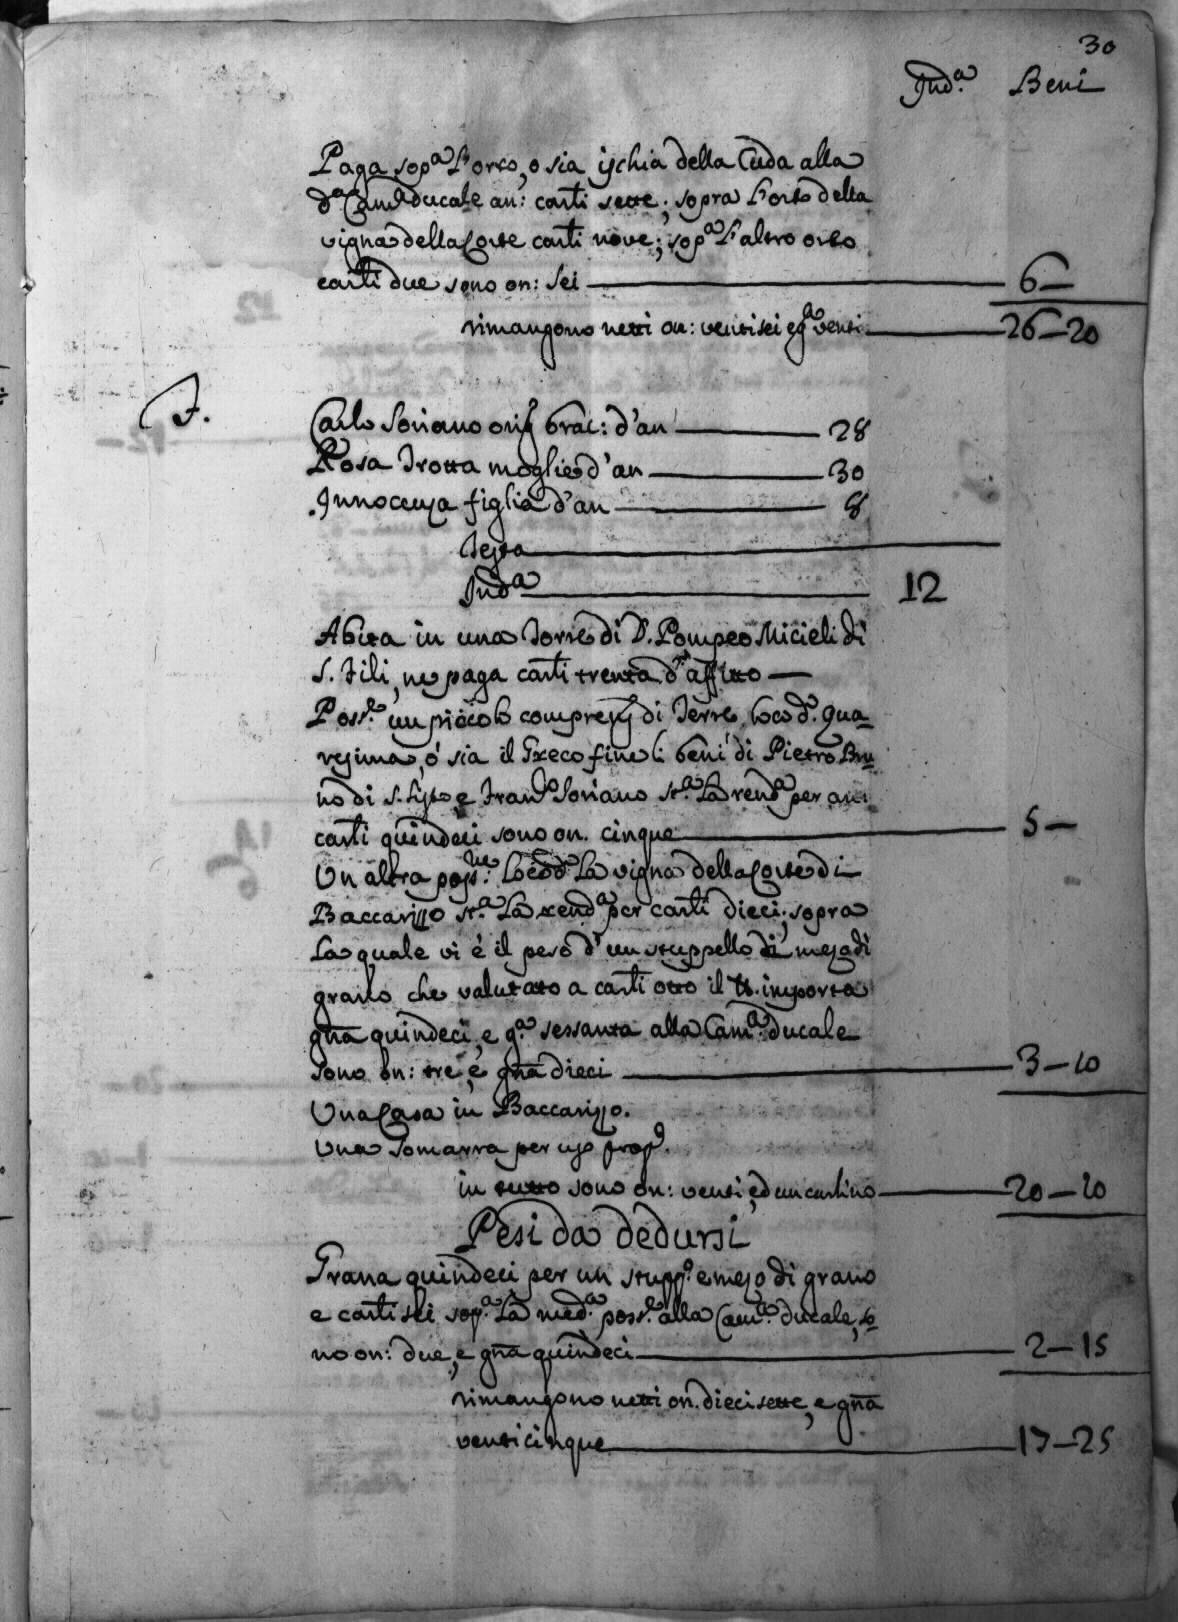 30
Ind.ª Beni
Paga sop.ª l'orto, o sia ischia della Cuda alla
d.ª Cam.ª ducale an: carli sette; sopra l'orto della
vigna della Corte carli nove; sop.ª l'altro orto
carli due sono on: sei 6—
rimangono netti on: ventisei e g.ª venti 26—20
T.
Carlo Soriano brac: d'an 28
Rosa Trotta moglie d'an 30
Innocenza figlia d'an 8
Testa
Ind.ª 12
Abita in una Torre di D. Pompeo Micieli di
S. Fili, ne paga carli trenta d'affitto —
Poss.e un piccolo di Terre, loco d.º Qua-
resima, ó sia il Greco fine li beni di Pietro Bru
no di S. Sisto, e Fran.co Soriano st.ª la rend.ª per an:
carli quindeci sono on. cinque 5—
Un altra poss.ne loco d.º la vigna della Corte di
Baccarizzo st.ª la rend.ª per carli dieci; sopra
la quale vi é il peso d'un stuppello di mezo di
grano che valutato a carli otto il tt. importa
gña quindeci, e g.ª sessanta alla Cam.ª ducale
sono on: tre, e gña dieci 3—10
Una Casa in Baccarizzo.
Una Somarra per uso prop.º
in tutto sono on: venti, ed un carlino 20—10
Pesi da dedursi
Grana quindeci per un stupp.º e mezo di grano
e carli sei sop.ª la med.ª poss.e alla Cam.ª ducale, so-
no on: due, e gña quindeci 2—15
rimangono netti on. diecisette, e gña
venticinque 17—25